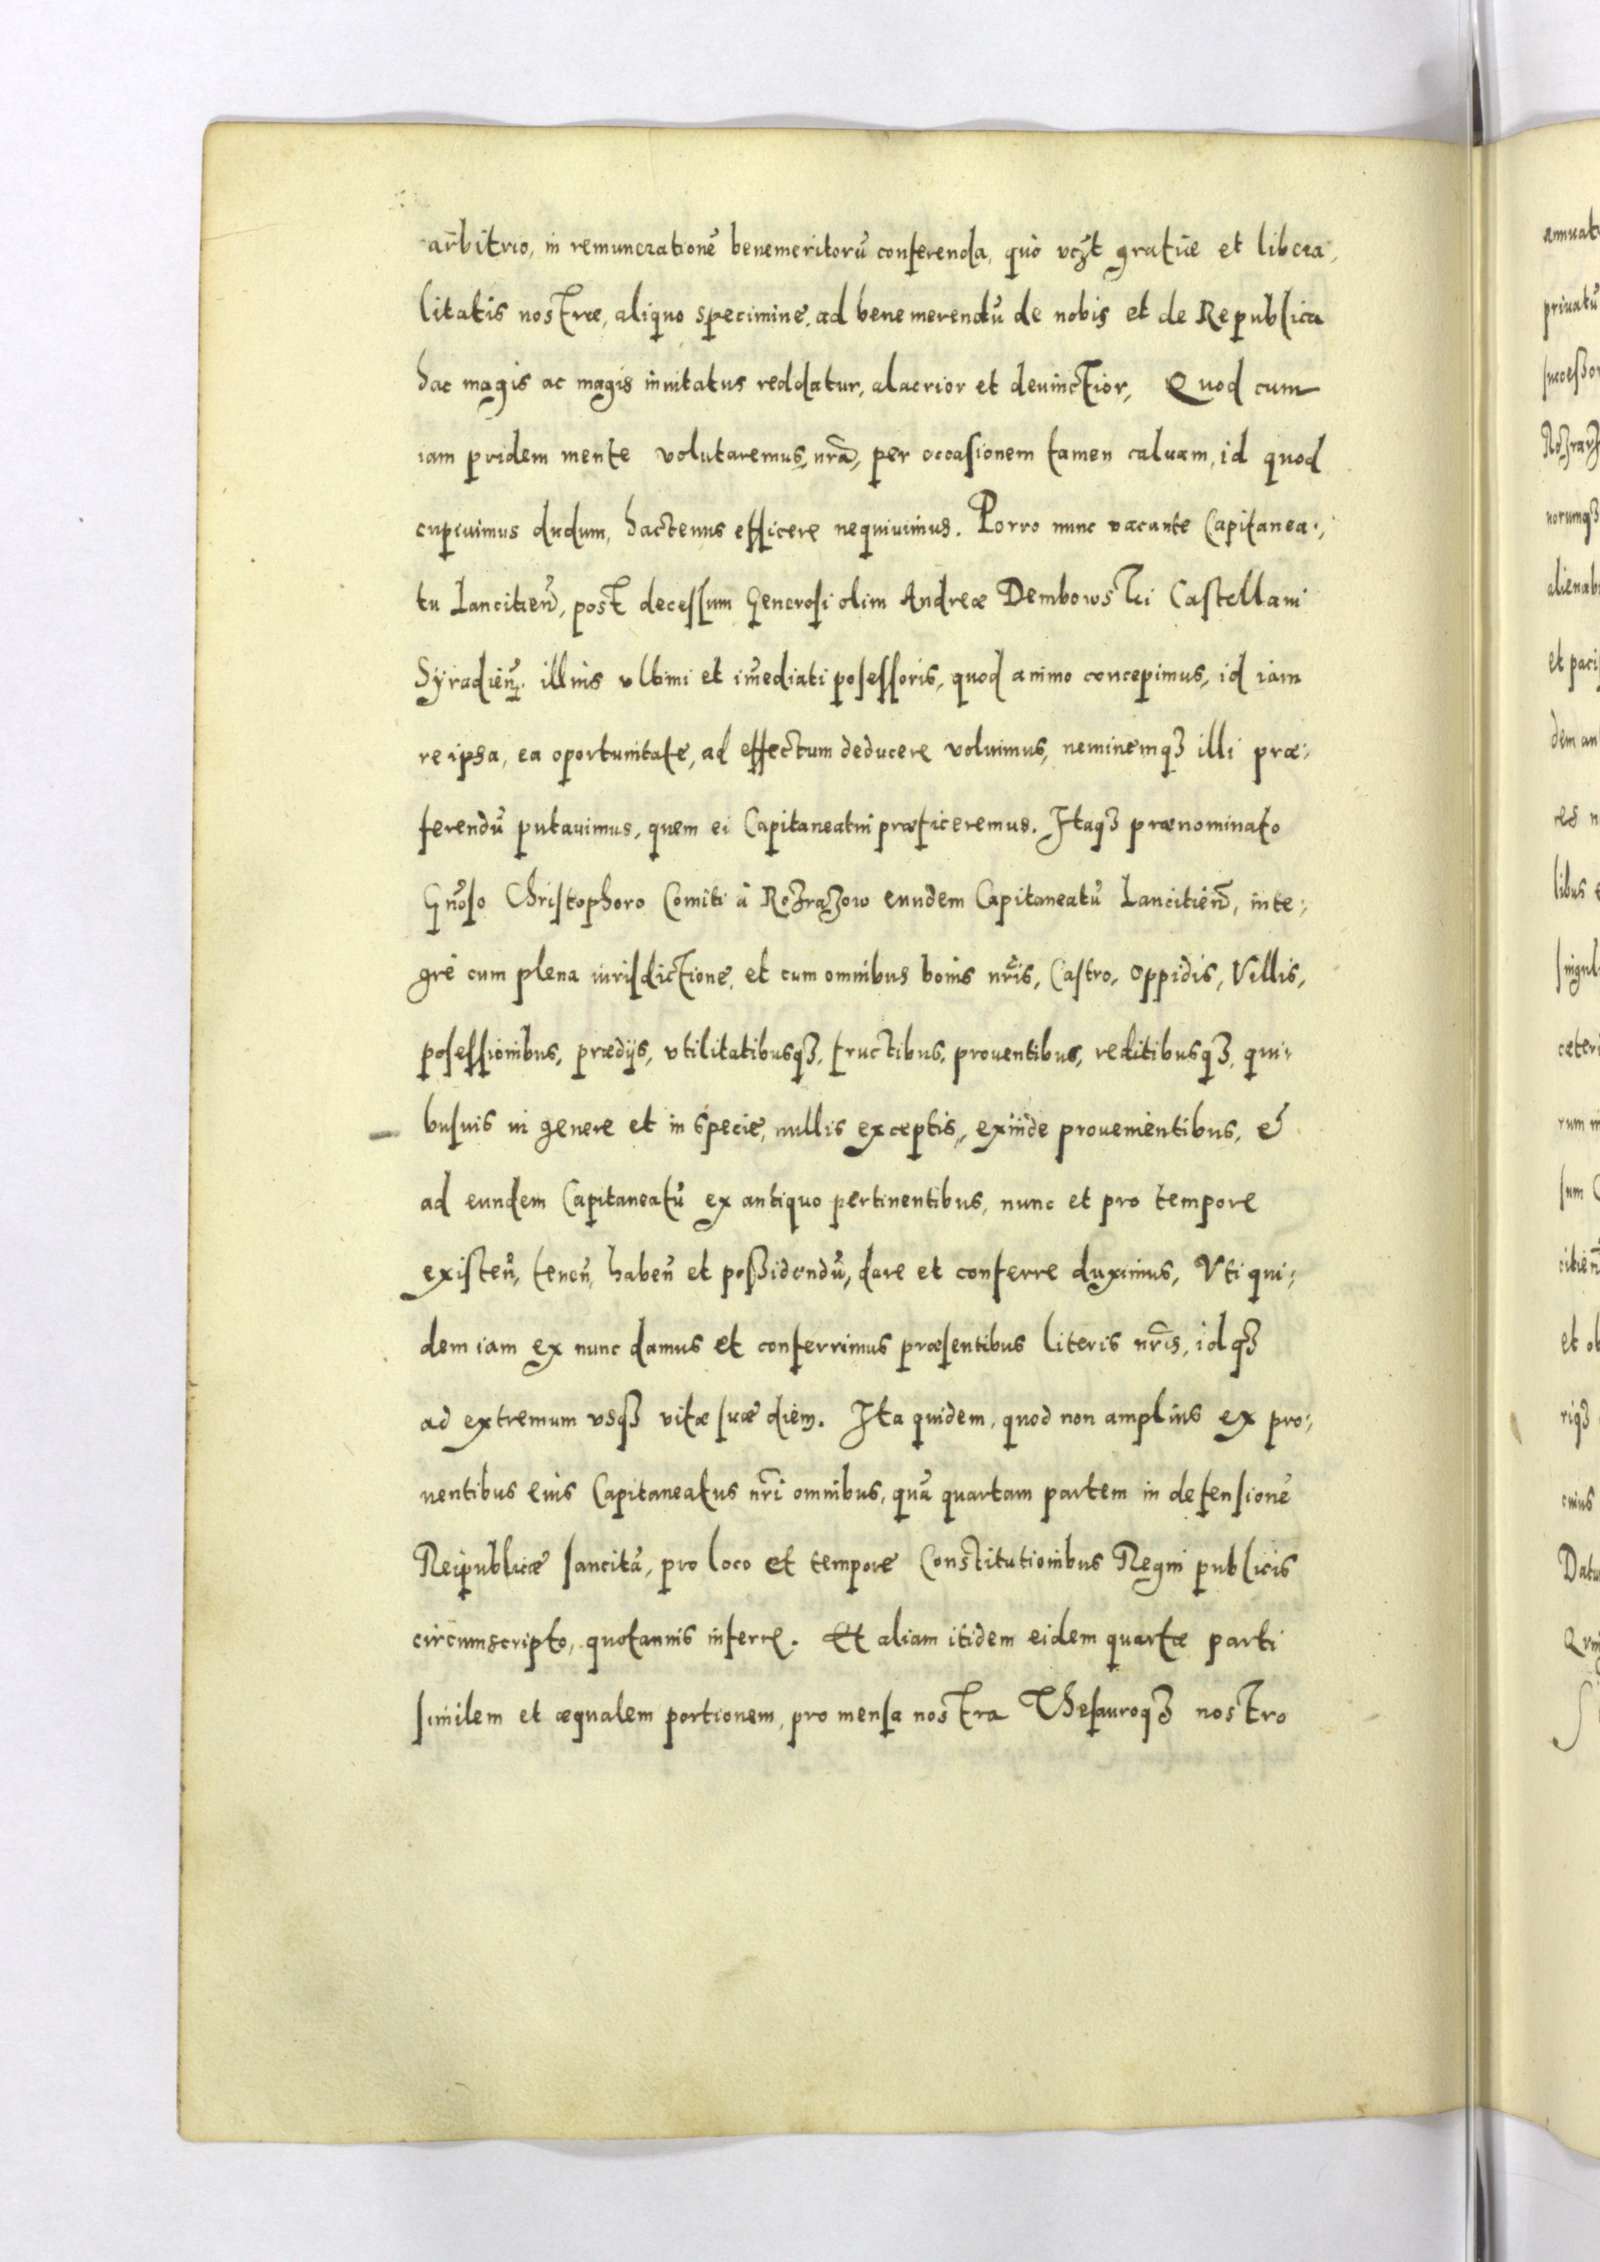 arbitrio, in remunerationẽ benemeritorũ conferenda, quò vtqz gratiæ et libera,
litatis nostræ, aliquo specimine, ad benemerendũ de nobis et de Republica
hac magis ac magis inuitatus reddatur, alacrior et deuinctior, Quod cum
iam pridem mente volutaremus, nrã, per occasionem tamen caluam, id quod
cupiuimus dudum, hactenus efficere nequiuimus. Porro nunc vacante Capitanea,
tu Lancitieñ, post decessum Generosi olim Andreæ Dembowski Castellani
Syradieñ. illius vltimi et im̃ediati posessoris, quod animo concepimus, id iam
re ipsa, ea oportunitate, ad effectum deducere voluimus, neminemqz illi præ,
ferendũ putauimus, quem ei Capitaneatui præficeremus. Itaqz prænominato
Gñoso Christophoro Comiti à Rozrazow eundem Capitaneatũ Lancitieñ, inte,
grè cum plena iurisdictione, et cum omnibus bonis nrĩs, Castro, Oppidis, Villis,
posessionibus, prædijs, vtilitatibusqz, fructibus, prouentibus, reditibusqz, qui,
busuis in genere et in specie, nullis exceptis, exinde prouenientibus, &
ad eundem Capitaneatũ ex antiquo pertinentibus, nunc et pro tempore
existeñ, teneñ, habeñ et poßidendũ, dare et conferre duximus, Vti qui,
dem iam ex nunc damus et conferrimus præsentibus literis nrĩs, idqz
ad extremum vsqz vitæ suæ diem. Ita quidem, quod non amplius ex pro,
uentibus eius Capitaneatus nrĩ omnibus, quã quartam partem in defensionẽ
Reipublicæ sancitã, pro loco et tempore Constitutionibus Regni publicis
circumscripto, quotannis inferre. Et aliam itidem eidem quartæ parti
similem et æqualem portionem, pro mensa nostra Thesauroqz nostro